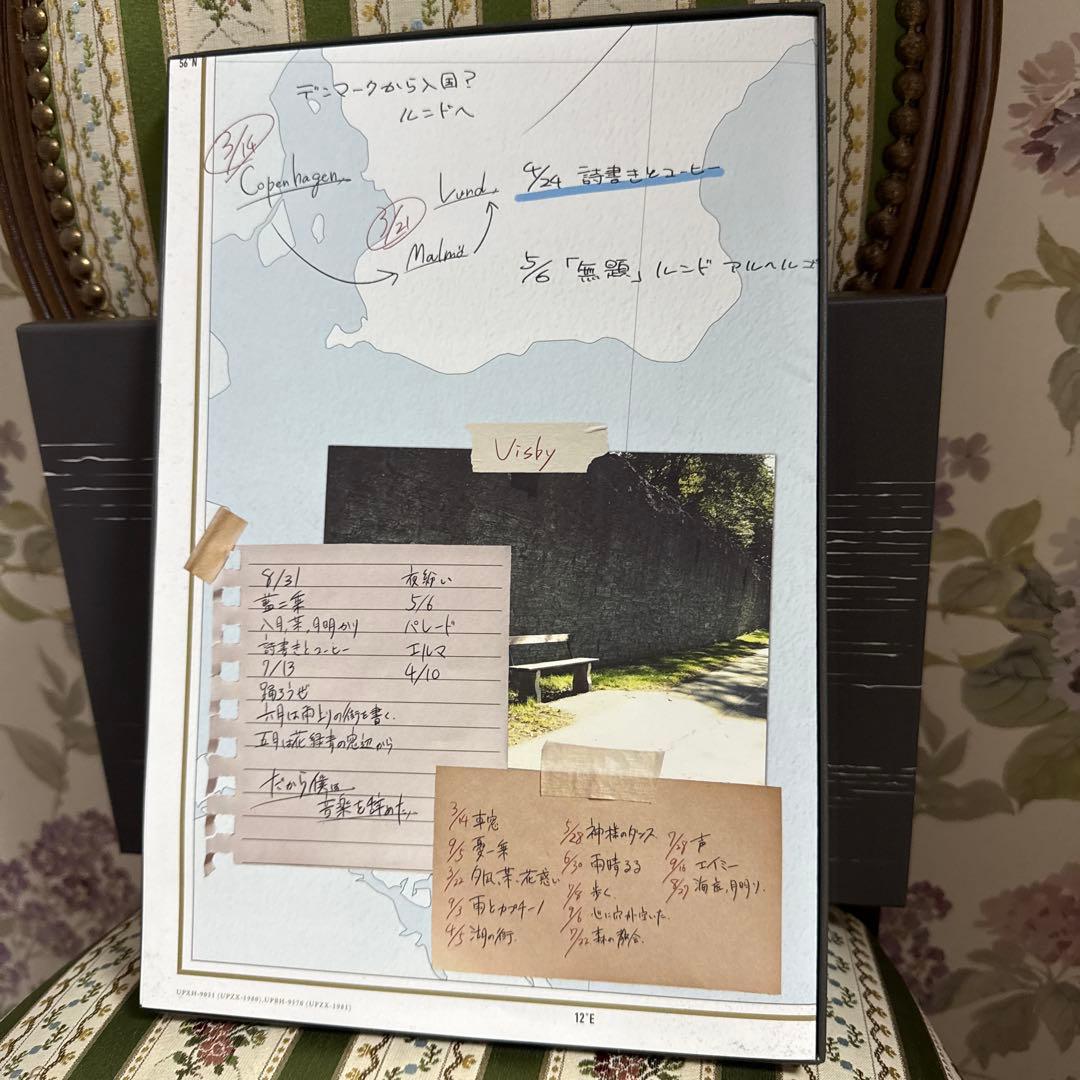 56°N
デンマークから入国?
ルンドへ
3/14
Copenhagen
3/21
Malmö
Lund
4/24 詩書きとコーヒー
5/6 「無題」ルンド アルヘルゴ
Visby
8/31
藍二乗
八月、某、月明かり
詩書きとコーヒー
7/13
踊ろうぜ
六月は雨上りの街を書く
五月は花緑青の窓辺から
だから僕は
音楽を辞めた
夜紛い
5/6
パレード
エルマ
4/10
3/14 車窓
9/5 憂一乗
3/22 夕凪、某、花惑い
9/3 雨とカプチーノ
4/5 湖の街
5/28 神様のダンス
6/30 雨晴るる
7/8 歩く
9/6 心に穴が空いた
7/22 森の教会
7/28 声
9/16 エイミー
8/27 海底、月明り
UPXH-9031 (UPZX-1980),UPBH-9570 (UPZX-1981)
12°E